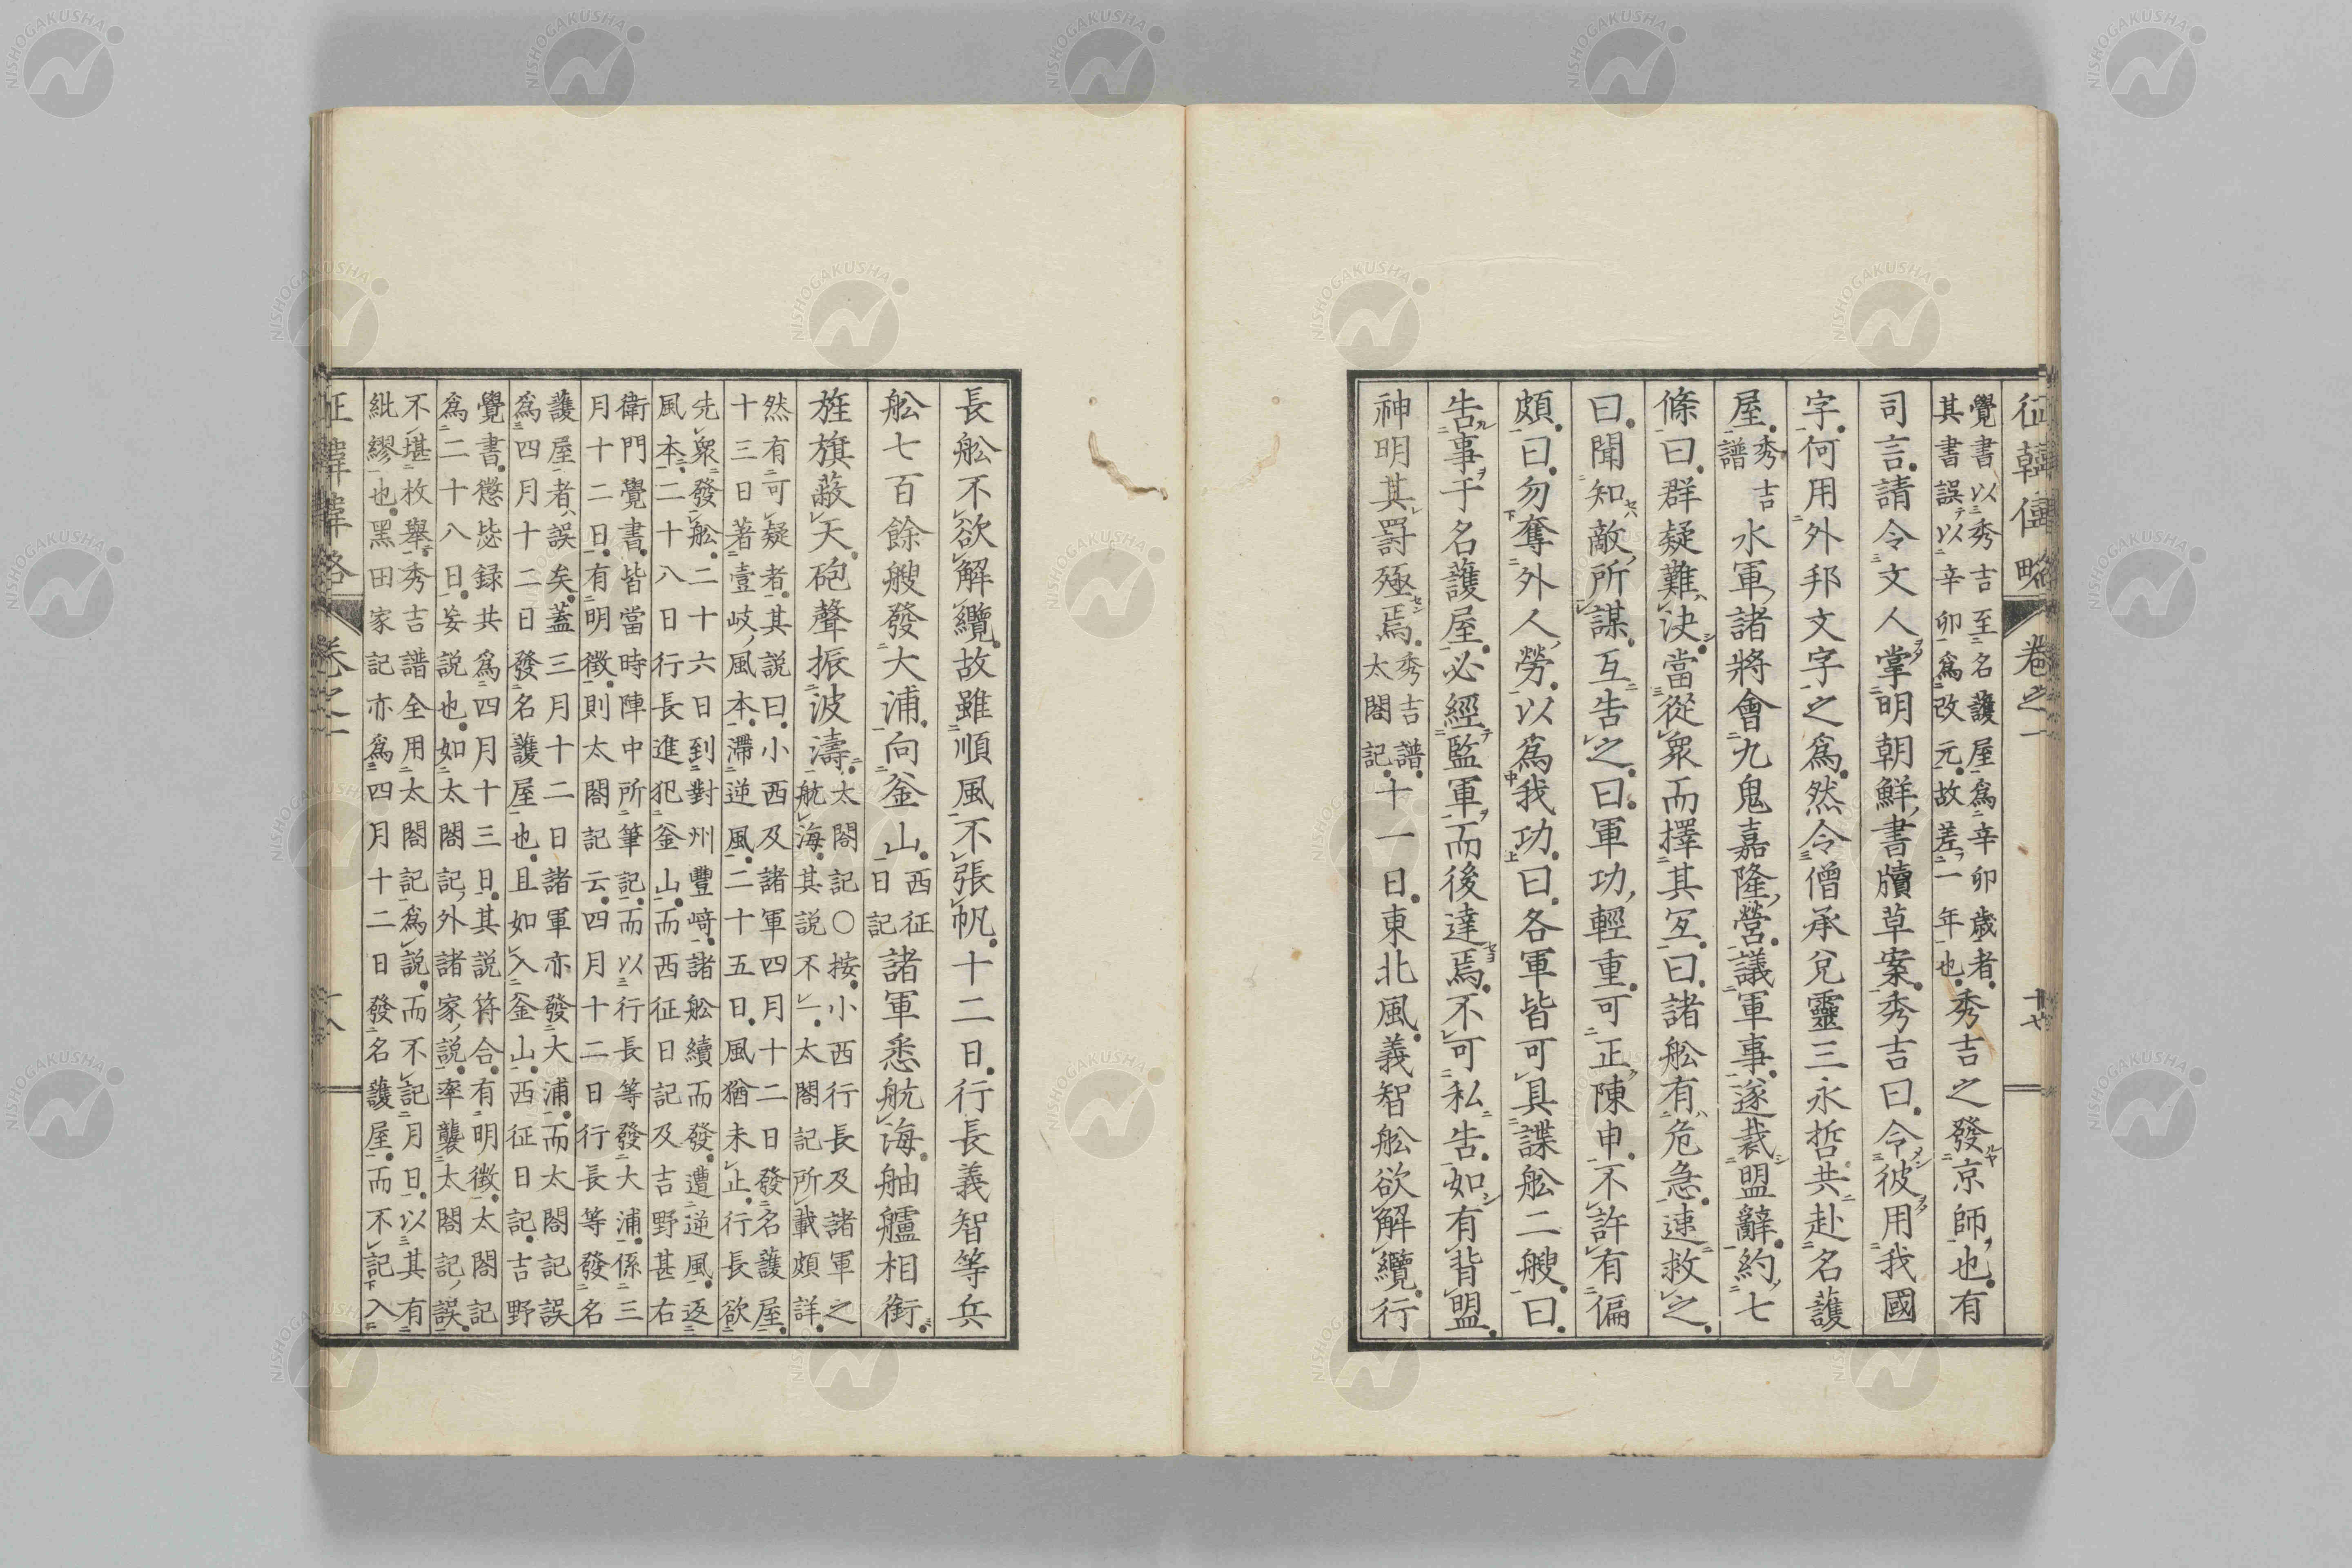 征韓偉略 卷之一 十七
覺書以秀吉至名護屋爲辛卯歳者。
其書誤以辛卯爲改元。故差一年也。秀吉之發京師也。有
司言。請令文人掌明朝鮮書牘草案。秀吉曰。令彼用我國
字。何用外邦文字之爲。然令僧承兌靈三永哲共赴名護
屋。秀吉譜 水軍諸將會九鬼嘉隆營。議軍事。遂裁盟辭。約七
條。曰。群疑難決。當從衆而擇其宜。曰。諸舩有危急。速救之。
曰。聞知敵所謀。互告之。曰。軍功輕重。可正陳申。不許有偏
頗。曰。勿奪外人勞。以爲我功。曰。各軍皆可具諜舩二艘。曰。
告事于名護屋。必經監軍。而後達焉。不可私告。如有背盟。
神明其罰殛焉。秀吉譜。太閤記 十一日。東北風。義智舩欲解纜。行
長舩不欲解纜。故雖順風不張帆。十二日。行長義智等兵
舩七百餘艘發大浦。向釜山。西征日記 諸軍悉航海。舳艫相銜。
旌旗蔽天。砲聲振波濤。太閤記〇按。小西行長及諸軍之
航海。其説不一。太閤記所載頗詳。
然有可疑者。其説曰。小西及諸軍四月十二日發名護屋。
十三日著壹岐風本。滯逆風。二十五日。風猶未止。行長欲
先衆發舩。二十六日到對州豐﨑。諸舩續而發。遭逆風。返
風本。二十八日行長進犯釜山。而西征日記及吉野甚右
衛門覺書。皆當時陣中所筆記。而以行長等發大浦。係三
月十二日。有明徵。則太閤記云。四月十二日行長等發名
護屋者。誤矣。蓋三月十二日諸軍亦發大浦。而太閤記誤
爲四月十二日發名護屋也。且如入釜山。西征日記。吉野
覺書。懲毖録共爲四月十三日。其説符合。有明徵。太閤記
爲二十八日。妄説也。如太閤記外諸家説。率襲太閤記誤。
不堪枚擧。秀吉譜全用太閤記爲説。而不記月日。以其有
紕繆也。黑田家記亦爲四月十二日發名護屋。而不記入
征韓偉略 卷之一 十八